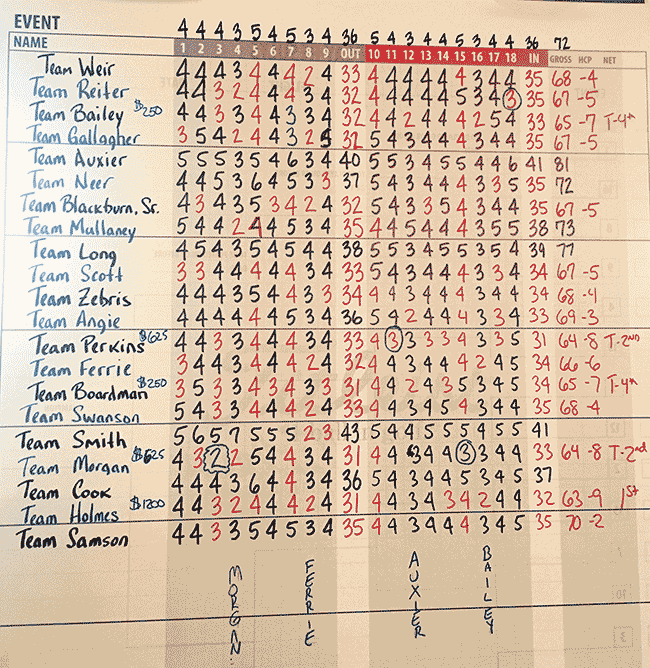 EVENT 4 4 4 3 5 4 5 3 4 36 5 4 3 4 4 5 4 3 4 36 72
NAME 1 2 3 4 5 6 7 8 9 OUT 10 11 12 13 14 15 16 17 18 IN GROSS HCP NET
Team Weir 4 4 4 3 4 4 4 2 4 33 4 4 4 4 4 4 3 4 4 35 68 -4
Team Reiter 4 4 3 2 4 4 4 3 4 32 4 4 4 4 4 5 3 4 3 35 67 -5
Team Bailey $250 4 4 3 3 4 4 3 3 4 32 4 4 2 4 4 4 2 5 4 33 65 -7 T-4th
Team Gallagher 3 5 4 2 4 4 3 2 5 32 5 4 3 4 4 4 3 4 4 35 67 -5
Team Auxier 5 5 5 3 5 4 6 3 4 40 5 5 3 4 5 5 4 4 6 41 81
Team Neer 4 4 5 3 6 4 5 3 3 37 5 4 3 4 4 4 3 3 5 35 72
Team Blackburn, Sr. 4 3 4 3 5 3 4 2 4 32 5 4 3 3 5 4 3 4 4 35 67 -5
Team Mullaney 5 4 4 2 4 4 5 3 4 35 4 4 5 4 4 4 3 5 5 38 73
Team Long 4 5 4 3 5 4 5 4 4 38 5 5 3 4 5 5 3 5 4 39 77
Team Scott 3 3 4 4 4 4 4 3 4 33 5 4 3 4 4 4 3 3 4 34 67 -5
Team Zebris 4 4 4 3 5 4 4 3 3 34 4 4 3 4 4 4 3 4 4 34 68 -4
Team Angie 4 4 4 4 4 4 5 3 4 36 5 4 2 4 4 4 3 3 4 33 69 -3
Team Perkins $625 4 4 3 3 4 4 4 3 4 33 4 3 3 3 3 4 3 3 5 31 64 -8 T-2ND
Team Ferrie 3 4 4 3 4 4 4 2 4 32 4 4 3 4 4 4 2 4 5 34 66 -6
Team Boardman $250 3 5 3 3 4 3 4 3 3 31 4 4 2 4 3 5 3 4 5 34 65 -7 T-4th
Team Swanson 5 4 3 3 4 4 4 2 4 33 4 4 3 4 5 4 3 4 4 35 68 -4
Team Smith 5 6 5 7 5 5 5 2 3 43 5 4 4 5 5 5 4 5 5 41
Team Morgan $625 4 3 2 2 5 4 4 3 4 31 4 4 3 4 4 3 3 4 4 33 64 -8 T-2nd
Team Cook 4 4 4 3 6 4 4 3 4 36 5 4 3 4 4 5 3 4 5 37
Team Holmes $1200 4 4 3 2 4 4 4 2 4 31 4 4 3 4 3 4 2 4 4 32 63 -9 1st
Team Samson 4 4 3 3 5 4 5 3 4 35 4 4 3 4 4 4 3 4 5 35 70 -2
MORGAN
FERRIE
AUXIER
BAILEY